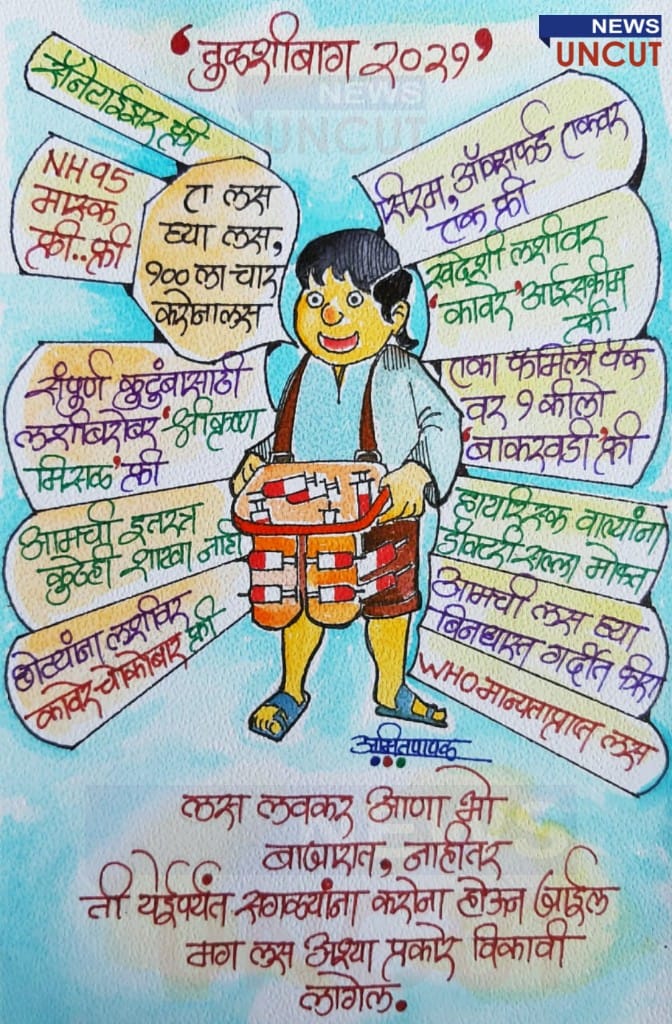 NEWS
UNCUT
'तुळशीबाग २०२१'
सॅनेटाईझर फ्री
NH95
मास्क
फ्री..फ्री
ए लस
घ्या लस,
१०० ला चार
करोना लस
संपूर्ण कुटुंबासाठी
लशीबरोबर 'श्रीकृष्ण
मिसळ' फ्री
आमची इतरत्र
कुठेही शाखा नाही
छोट्यांना लशीवर
कावेरे चोकोबार फ्री
सिरम, ऑक्सफर्ड एकावर
एक फ्री
स्वदेशी लशीवर
'कावेरे' आईसक्रीम
फ्री
एका फॅमिली पॅक
वर १ कीलो
'बाकरवडी' फ्री
हायरिस्क वाल्यांना
डॉक्टरी सल्ला मोफत
आमची लस घ्या
बिनधास्त गर्दीत फिरा
WHO मान्यताप्राप्त लस
लस लवकर आणा भो
बाजारात, नाहीतर
ती येईपर्यंत सगळ्यांना करोना होऊन जाईल
मग लस अश्या प्रकारे विकावी
लागेल.